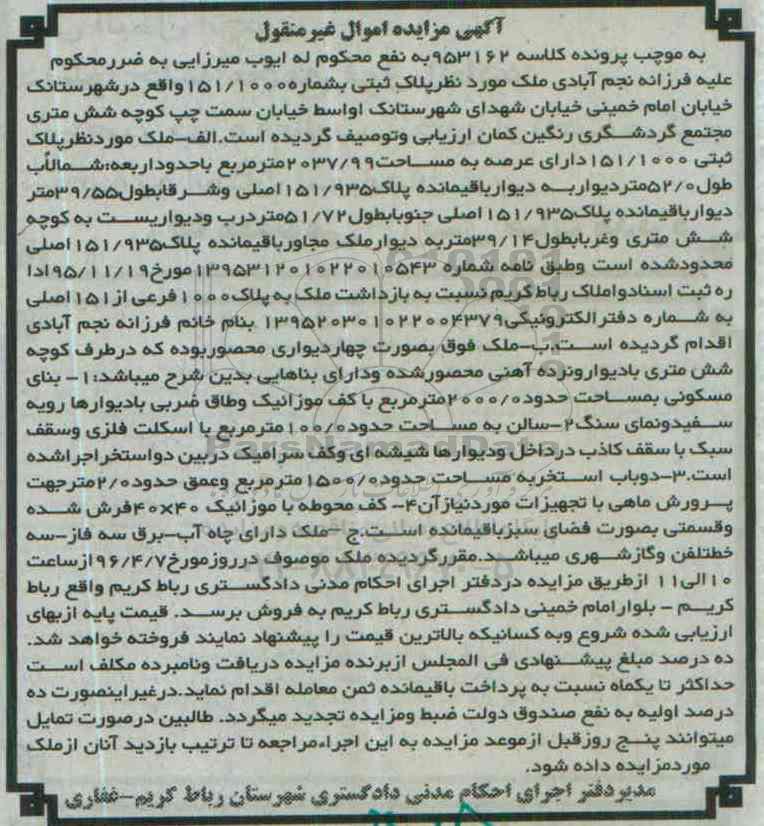 آگهی مزایده اموال غیرمنقول
به موجب پرونده کلاسه ۹۵۳۱۶۲ به نفع محکوم له ایوب میرزایی به ضررمحکوم
علیه فرزانه نجم آبادی ملک مورد نظرپلاک ثبتی بشماره۱۵۱/۱۰۰۰واقع درشهرستانک
خیابان امام خمینی خیابان شهدای شهرستانک اواسط خیابان سمت چپ کوچه شش متری
مجتمع گردشگری رنگین کمان ارزیابی وتوصیف گردیده است.الف-ملک موردنظرپلاک
ثبتی ۱۵۱/۱۰۰۰ دارای عرصه به مساحت۲۰۳۷/۹۹مترمربع باحدوداربعه:شمالاًب
طول۵۲/۰متردیواربه دیوارباقیمانده پلاک۱۵۱/۹۳۵اصلی وشرقابطول۳۹/۵۵متر
دیوارباقیمانده پلاک۱۵۱/۹۳۵اصلی جنوبابطول۵۱/۷۲متردرب ودیواریست به کوچه
شش متری وغربابطول۳۹/۱۴متربه دیوارملک مجاورباقیمانده پلاک۱۵۱/۹۳۵اصلی
محدودشده است وطبق نامه شماره ۱۳۹۵۳۱۲۰۱۰۲۲۰۱۰۵۴۳مورخ۹۵/۱۱/۱۹ادا
ره ثبت اسنادواملاک رباط کریم نسبت به بازداشت ملک به پلاک۱۰۰۰فرعی از۱۵۱اصلی
به شماره دفترالکترونیکی۱۳۹۵۲۰۳۰۱۰۲۲۰۰۴۳۷۹ بنام خانم فرزانه نجم آبادی
اقدام گردیده است.ب-ملک فوق بصورت چهاردیواری محصوربوده که درطرف کوچه
شش متری بادیوارونرده آهنی محصورشده ودارای بناهایی بدین شرح میباشد:۱- بنای
مسکونی بمساحت حدود۲۰۰۰/۰مترمربع با کف موزائیک وطاق ضربی بادیوارها رویه
سفیدونمای سنگ۲-سالن به مساحت حدود۱۰۰/۰مترمربع با اسکلت فلزی وسقف
سبک با سقف کاذب درداخل ودیوارها شیشه ای وکف سرامیک دربین دواستخراجراشده
است.۳-دوباب استخربه مساحت حدود۱۵۰۰/۰مترمربع وعمق حدود۲/۰مترجهت
پرورش ماهی با تجهیزات موردنیازآن۴- کف محوطه با موزائیک ۴۰×۴۰فرش شده
وقسمتی بصورت فضای سبزباقیمانده است.ج- ملک دارای چاه آب-برق سه فاز-سه
خطتلفن وگازشهری میباشد.مقررگردیده ملک موصوف درروزمورخ۹۶/۴/۷ازساعت
۱۰الی۱۱ ازطریق مزایده دردفتر اجرای احکام مدنی دادگستری رباط کریم واقع رباط
کریم - بلوارامام خمینی دادگستری رباط کریم به فروش برسد. قیمت پایه ازبهای
ارزیابی شده شروع وبه کسانیکه بالاترین قیمت را پیشنهاد نمایند فروخته خواهد شد.
ده درصد مبلغ پیشنهادی فی المجلس ازبرنده مزایده دریافت ونامبرده مکلف است
حداکثر تا یکماه نسبت به پرداخت باقیمانده ثمن معامله اقدام نماید.درغیراینصورت ده
درصد اولیه به نفع صندوق دولت ضبط ومزایده تجدید میگردد. طالبین درصورت تمایل
میتوانند پنج روزقبل ازموعد مزایده به این اجراءمراجعه تا ترتیب بازدید آنان ازملک
موردمزایده داده شود.
مدیردفتر اجرای احکام مدنی دادگستری شهرستان رباط کریم-غفاری
ParsNamadData